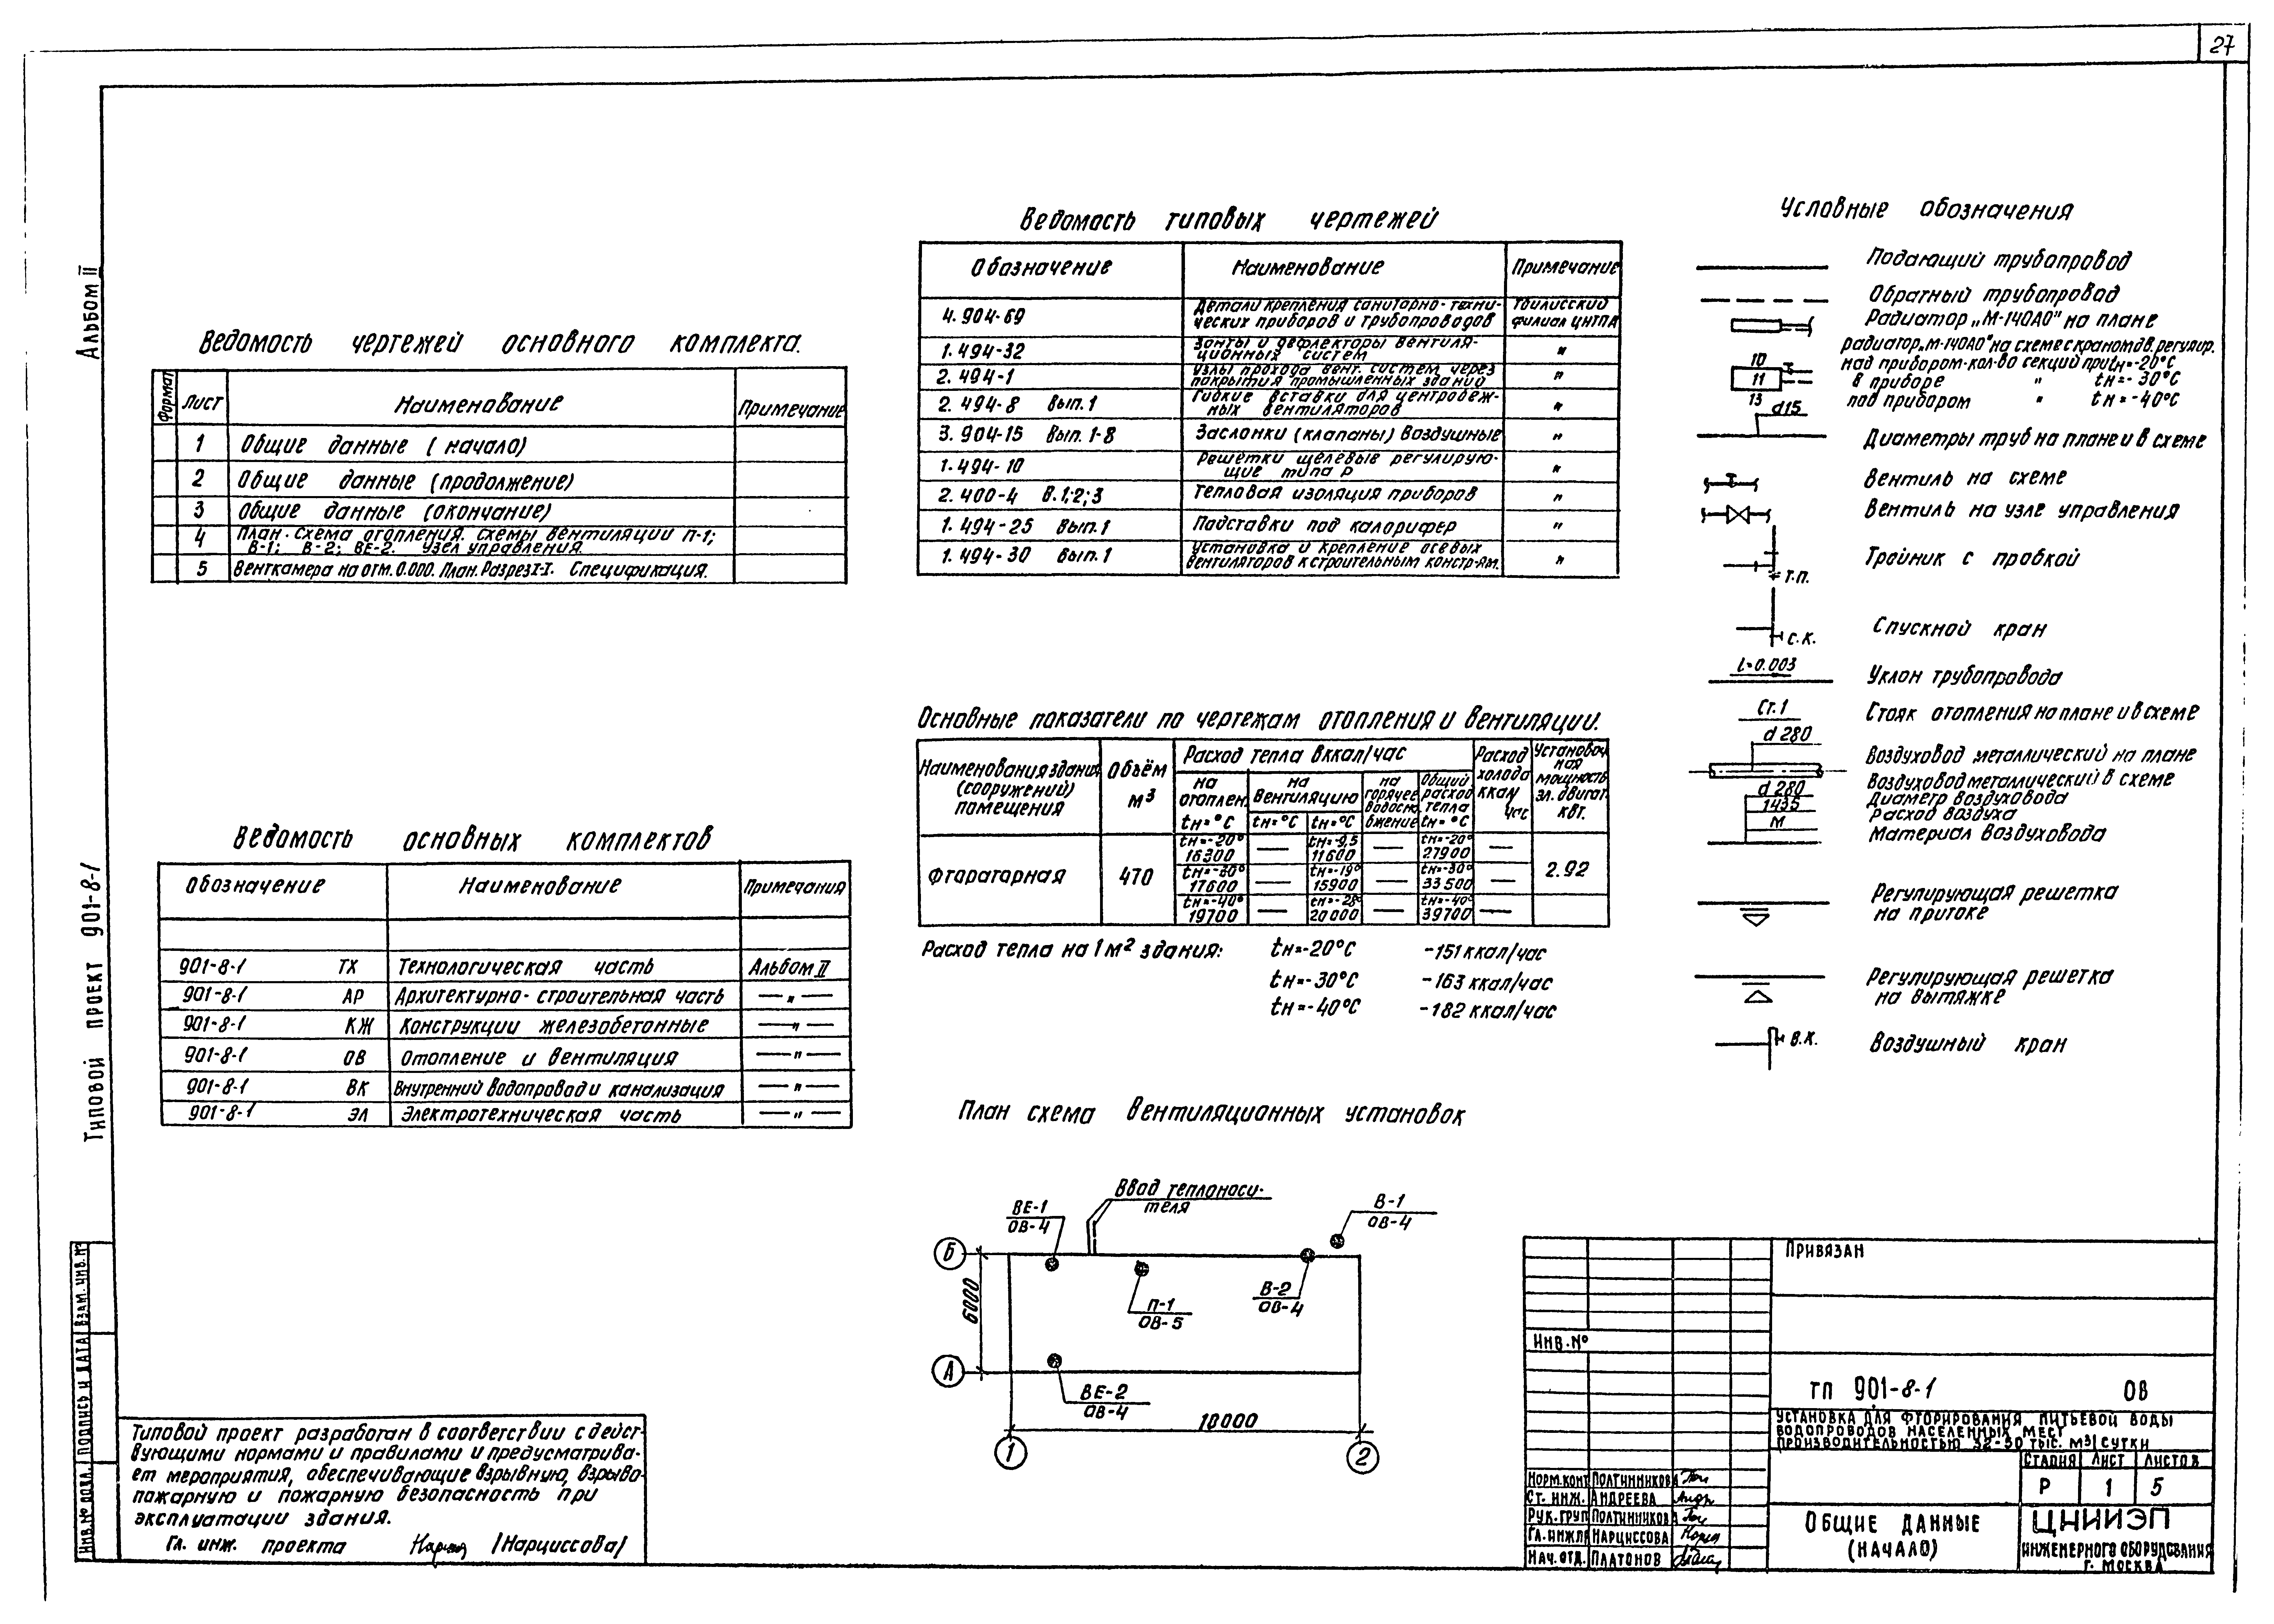 27
Альбом II
Типовой проект 901-8-1
Инв.№ подл.
Подпись и дата
Взам. инв. №
Ведомость чертежей основного комплекта.
Формат
Лист
Наименование
Примечание
1 Общие данные (начало)
2 Общие данные (продолжение)
3 Общие данные (окончание)
4 План. Схема отопления. Схемы вентиляции П-1;
В-1; В-2; ВЕ-2. Узел управления.
5 Венткамера на отм. 0.000. План. Разрез I-I. Спецификация.
Ведомость основных комплектов
Обозначение Наименование Примечания
901-8-1 ТХ Технологическая часть Альбом II
901-8-1 АР Архитектурно-строительная часть — " —
901-8-1 КЖ Конструкции железобетонные — " —
901-8-1 ОВ Отопление и вентиляция — " —
901-8-1 ВК Внутренний водопровод и канализация — " —
901-8-1 ЭЛ Электротехническая часть — " —
Типовой проект разработан в соответствии с дейст-
вующими нормами и правилами и предусматрива-
ет мероприятия, обеспечивающие взрывную, взрыво-
пожарную и пожарную безопасность при
эксплуатации здания.
Гл. инж. проекта /Нарциссова/
Ведомость типовых чертежей
Обозначение Наименование Примечание
4.904-69 Детали крепления санитарно-техни-
ческих приборов и трубопроводов
Тбилисский
филиал ЦИТПА
1.494-32 Зонты и дефлекторы вентиля-
ционных систем "
2.494-1 Узлы прохода вент. систем через
покрытия промышленных зданий "
2.494-8 Вып.1 Гибкие вставки для центробеж-
ных вентиляторов "
3.904-15 Вып. 1-8 Заслонки (клапаны) воздушные "
1.494-10 Решетки щелевые регулирую-
щие типа Р "
2.400-4 В.1;2;3 Тепловая изоляция приборов "
1.494-25 Вып.1 Подставки под калорифер "
1.494-30 Вып.1 Установка и крепление осевых
вентиляторов к строительным констр-ям. "
Основные показатели по чертежам отопления и вентиляции.
Наименования здания
(сооружений)
помещения
Объём
м³
Расход тепла в ккал/час
на
отоплен.
tн=°С
на
вентиляцию
tн=°С tн=°С
на
горячее
водосна
бжение
Общий
расход
тепла
tн=°С
Расход
холода
ккал/
час
Установоч
ная
мощность
эл. двигат.
квт.
Фтораторная 470
tн=-20° — tн=-9,5 — tн=-20° —
16300 11600 27900
2.92
tн=-30° — tн=-19° — tн=-30° —
17600 15900 33500
tн=-40° — tн=-28° — tн=-40° —
19700 20000 39700
Расход тепла на 1м² здания: tн=-20°С -151 ккал/час
tн=-30°С -163 ккал/час
tн=-40°С -182 ккал/час
План схема вентиляционных установок
Ввод теплоноси-
теля
ВЕ-1
ОВ-4
В-1
ОВ-4
П-1
ОВ-5
В-2
ОВ-4
ВЕ-2
ОВ-4
Б
А
6000
10000
1
2
Условные обозначения
Подающий трубопровод
Обратный трубопровод
Радиатор „М-140АО" на плане
радиатор „М-140АО" на схеме с краном дв. регулир.
10 над прибором-кол-во секций при tн=-20°С
11 в приборе " tн=-30°С
13 под прибором " tн=-40°С
d15
Диаметры труб на плане и в схеме
Вентиль на схеме
Вентиль на узле управления
Тройник с пробкой
Т.П.
Спускной кран
С.К.
i=0.003
Уклон трубопровода
Ст.1
Стояк отопления на плане и в схеме
d 280
Воздуховод металлический на плане
Воздуховод металлический в схеме
d 280 Диаметр воздуховода
1435 Расход воздуха
М Материал воздуховода
Регулирующая решетка
на притоке
Регулирующая решетка
на вытяжке
В.К.
Воздушный кран
Привязан
Инв.№
ТП 901-8-1 ОВ
Установка для фторирования питьевой воды
водопроводов населенных мест
производительностью 32-50 тыс. м³/сутки
Стадия Лист Листов
Р 1 5
Общие данные
(начало)
ЦНИИЭП
инженерного оборудования
г. Москва
Норм.конт Полтинникова
Ст. инж. Андреева
Рук.груп Полтинникова
Гл.инж.п Нарциссова
Нач.отд. Платонов